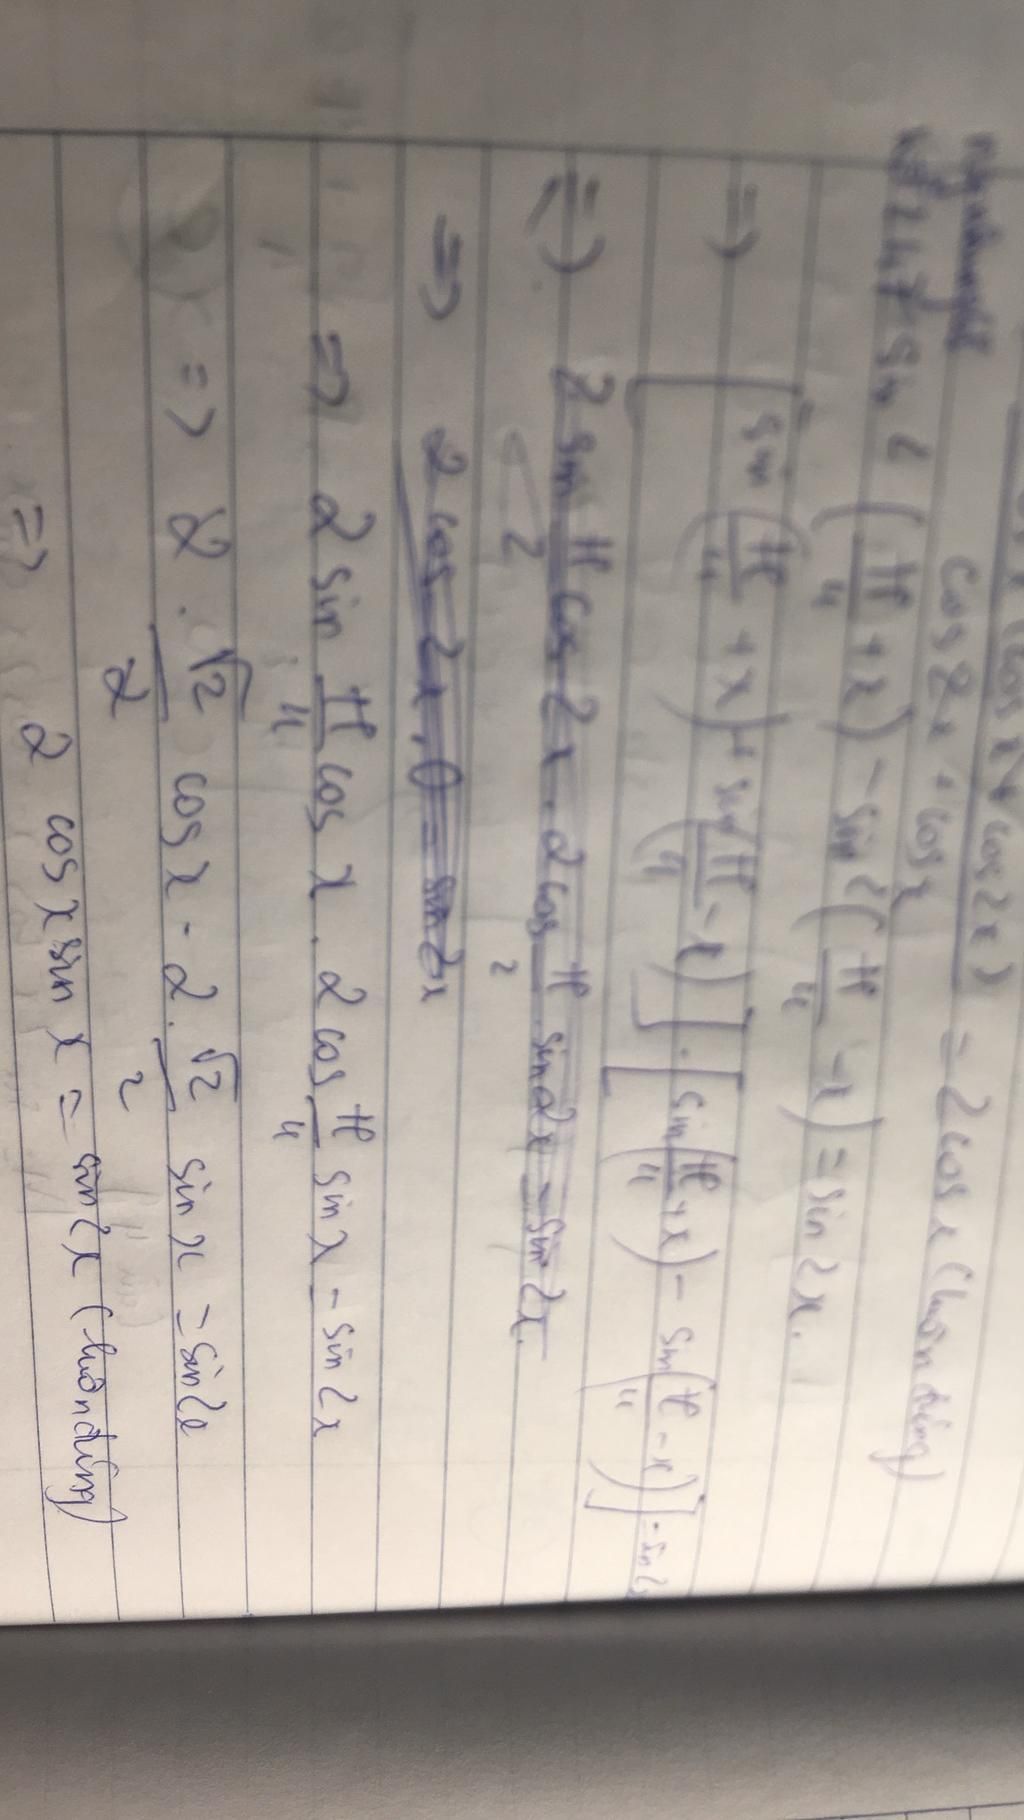 (cos x + cos 2x) = 2 cos x (luôn đúng)
cos 2x + cos x
sin² (π/4 + x) - sin² (π/4 - x) = sin 2x.
=> [sin (π/4 + x) + sin (π/4 - x)] . [sin (π/4 + x) - sin (π/4 - x)] = sin 2x
=> 2 sin π/2 cos 2x . 2 cos π/2 sin 2x = sin 2x.
=> 2 cos 2x . 0 = sin 2x
=> 2 sin π/4 cos x . 2 cos π/4 sin x = sin 2x
=> 2 . √2/2 cos x . 2 . √2/2 sin x = sin 2x
=> 2 cos x sin x = sin 2x (luôn đúng)